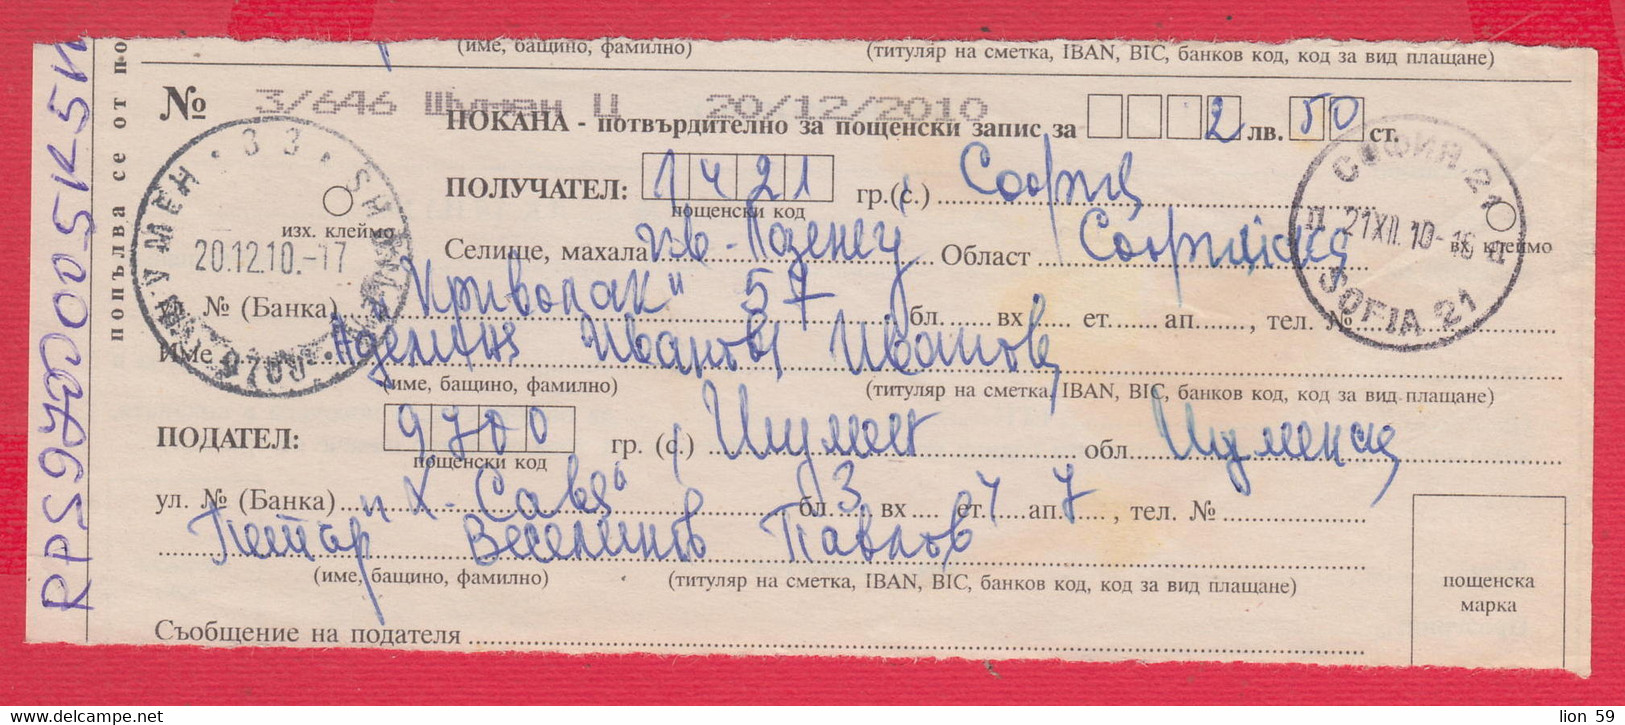 (име, бащино, фамилно) (титуляр на сметка, IBAN, BIC, банков код, код за вид плащане)
попълва се от по
RPS9700005K5И
№ 3/646 Шумен Ц 20/12/2010
ПОКАНА - потвърдително за пощенски запис за 2 лв. 50 ст.
ПОЛУЧАТЕЛ: 1421 гр.(с.) София
пощенски код
изх. клеймо
Селище, махала кв. Лозенец Област Софийска вх. клеймо
№ (Банка) "Криволак" 57 бл. вх. ет. ап. , тел. №
Име Аделина Иванова Иванова
(име, бащино, фамилно) (титуляр на сметка, IBAN, BIC, банков код, код за вид плащане)
ПОДАТЕЛ: 9700 гр. (с.) Шумен обл. Шуменска
пощенски код
ул. № (Банка) "Х. Сава" бл. 3 вх ет. 4 ап. 7 , тел. №
Петър Веселинов Павлов
(име, бащино, фамилно) (титуляр на сметка, IBAN, BIC, банков код, код за вид плащане)
пощенска
марка
Съобщение на подателя
ШУМЕН · 33 · SHUMEN
20.12.10.-17
9700
СОФИЯ 21
21XII.10-16
SOFIA 21
lion 59